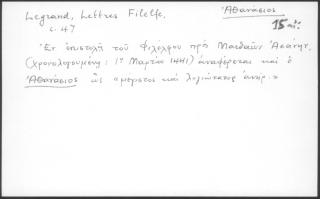 Legrand, Lettres Filelfe.
Ἀθανάσιος
σ. 47
15 αἰ:
Ἐν ἐπιστολῇ τοῦ Φιλέλφου πρὸς
(χρονολογουμένῃ: 1ῃ Μαρτίου 1441) ἀναφέρεται καὶ ὁ
Ἀθανάσιος ὡς «μέριστος καὶ λογιώτατος ἀνήρ.»